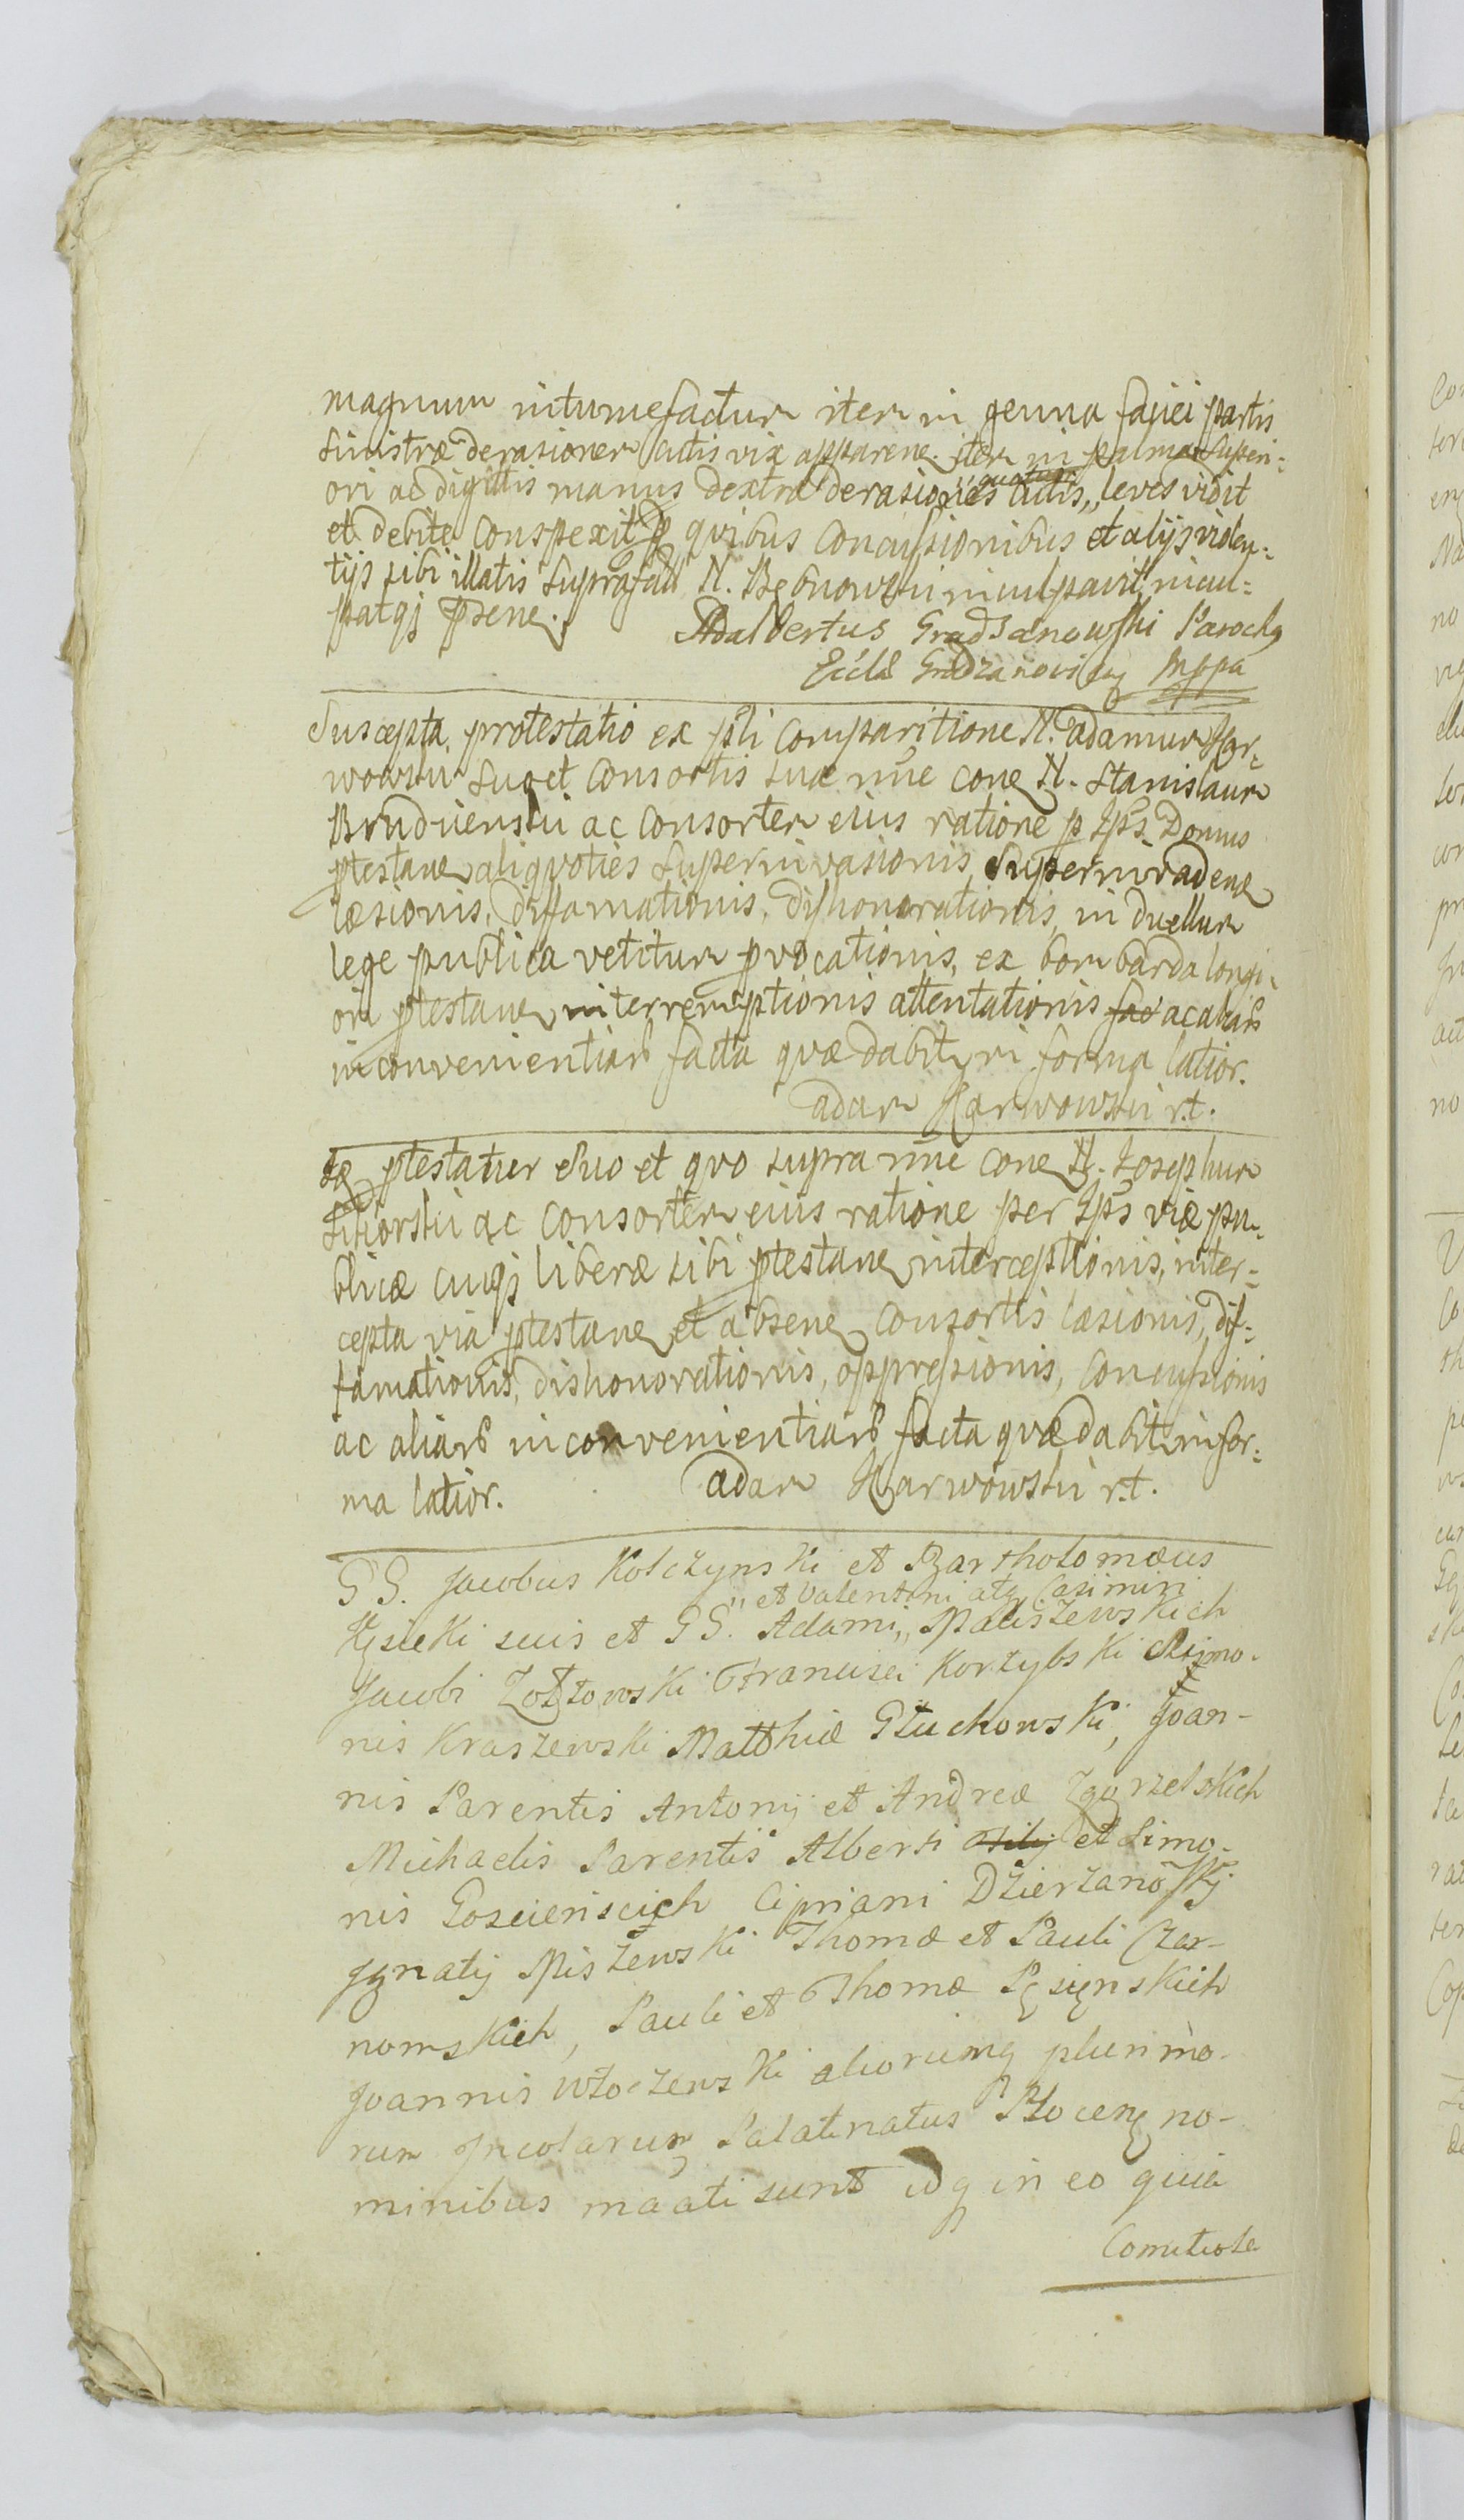 magnum intumefactum item in genna faciei partis
sinistræ derasionem cutis vix apparene. item in palma superi-
ori ac digittis manus dextræ derasiones cutis,, quatuor leves vidit
et debite conspexit p quibus concussionibus et alijs violen-
tijs sibi illatis suprafati N. inculpavit, incul-
patqj psene.
Adalbertus Gradzanowski Parochq
Eccla Gradzanoviens mppa
Suscepta protestatio ex psti comparitione N. Adamum Kar-
wowski suo et consortis suæ nne cone N. Stanislaum
Brudnienski ac consortem eius ratione p Ips Domus
ptestane aliquoties superinvasionis, superinvadene
læsionis, diffamationis, dishonorationis, in duellum
lege publica vetitum pvocationis, ex bombarda longi-
ori ptestane interremptionis attentationis fac ac aliarb
inconvenientiarb facta quæ dabitr in forma latior.
Adam Karwowski r.t.
Idem ptestatur suo et quo supra nne cone N. Josephum
Sikorski ac consortem eius ratione per Ips viæ pu-
blicæ cuiqj liberæ sibi ptestane interceptionis, inter-
cepta via ptestane et absene consortis læsionis, dif-
famationis, dishonorationis, oppressionis, concussionis
ac aliarb inconvenientiarb facta quæ dabitr in for-
ma latior. Adam Karwowski r.t.
GG. Jacobus Kolczynski et Bartholomæus
Kęsicki suis et GG. Adami,, et Valentini atq Casimiri Maliszewskich
Jacobi Zołtowski Francisci Korzybski Simo-
nis Kraszewski Matthiæ Głuchowski, Joan-
nis Parentis Antonij et Andreæ Zgorzelskich
Michaelis Parentis Alberti filij et Simo-
nis Gosciensicich Cipriani Dzierzanowskj
Ignatij Miszewski Thomæ et Pauli Czar-
nomskich, Pauli et Thomæ Pęsienskich
Joannis Włoczewski aliorumq plurimo-
rum Incolarum Palatinatus Plocens no-
minibus mãati sunt idq in eo quia
Comitiola